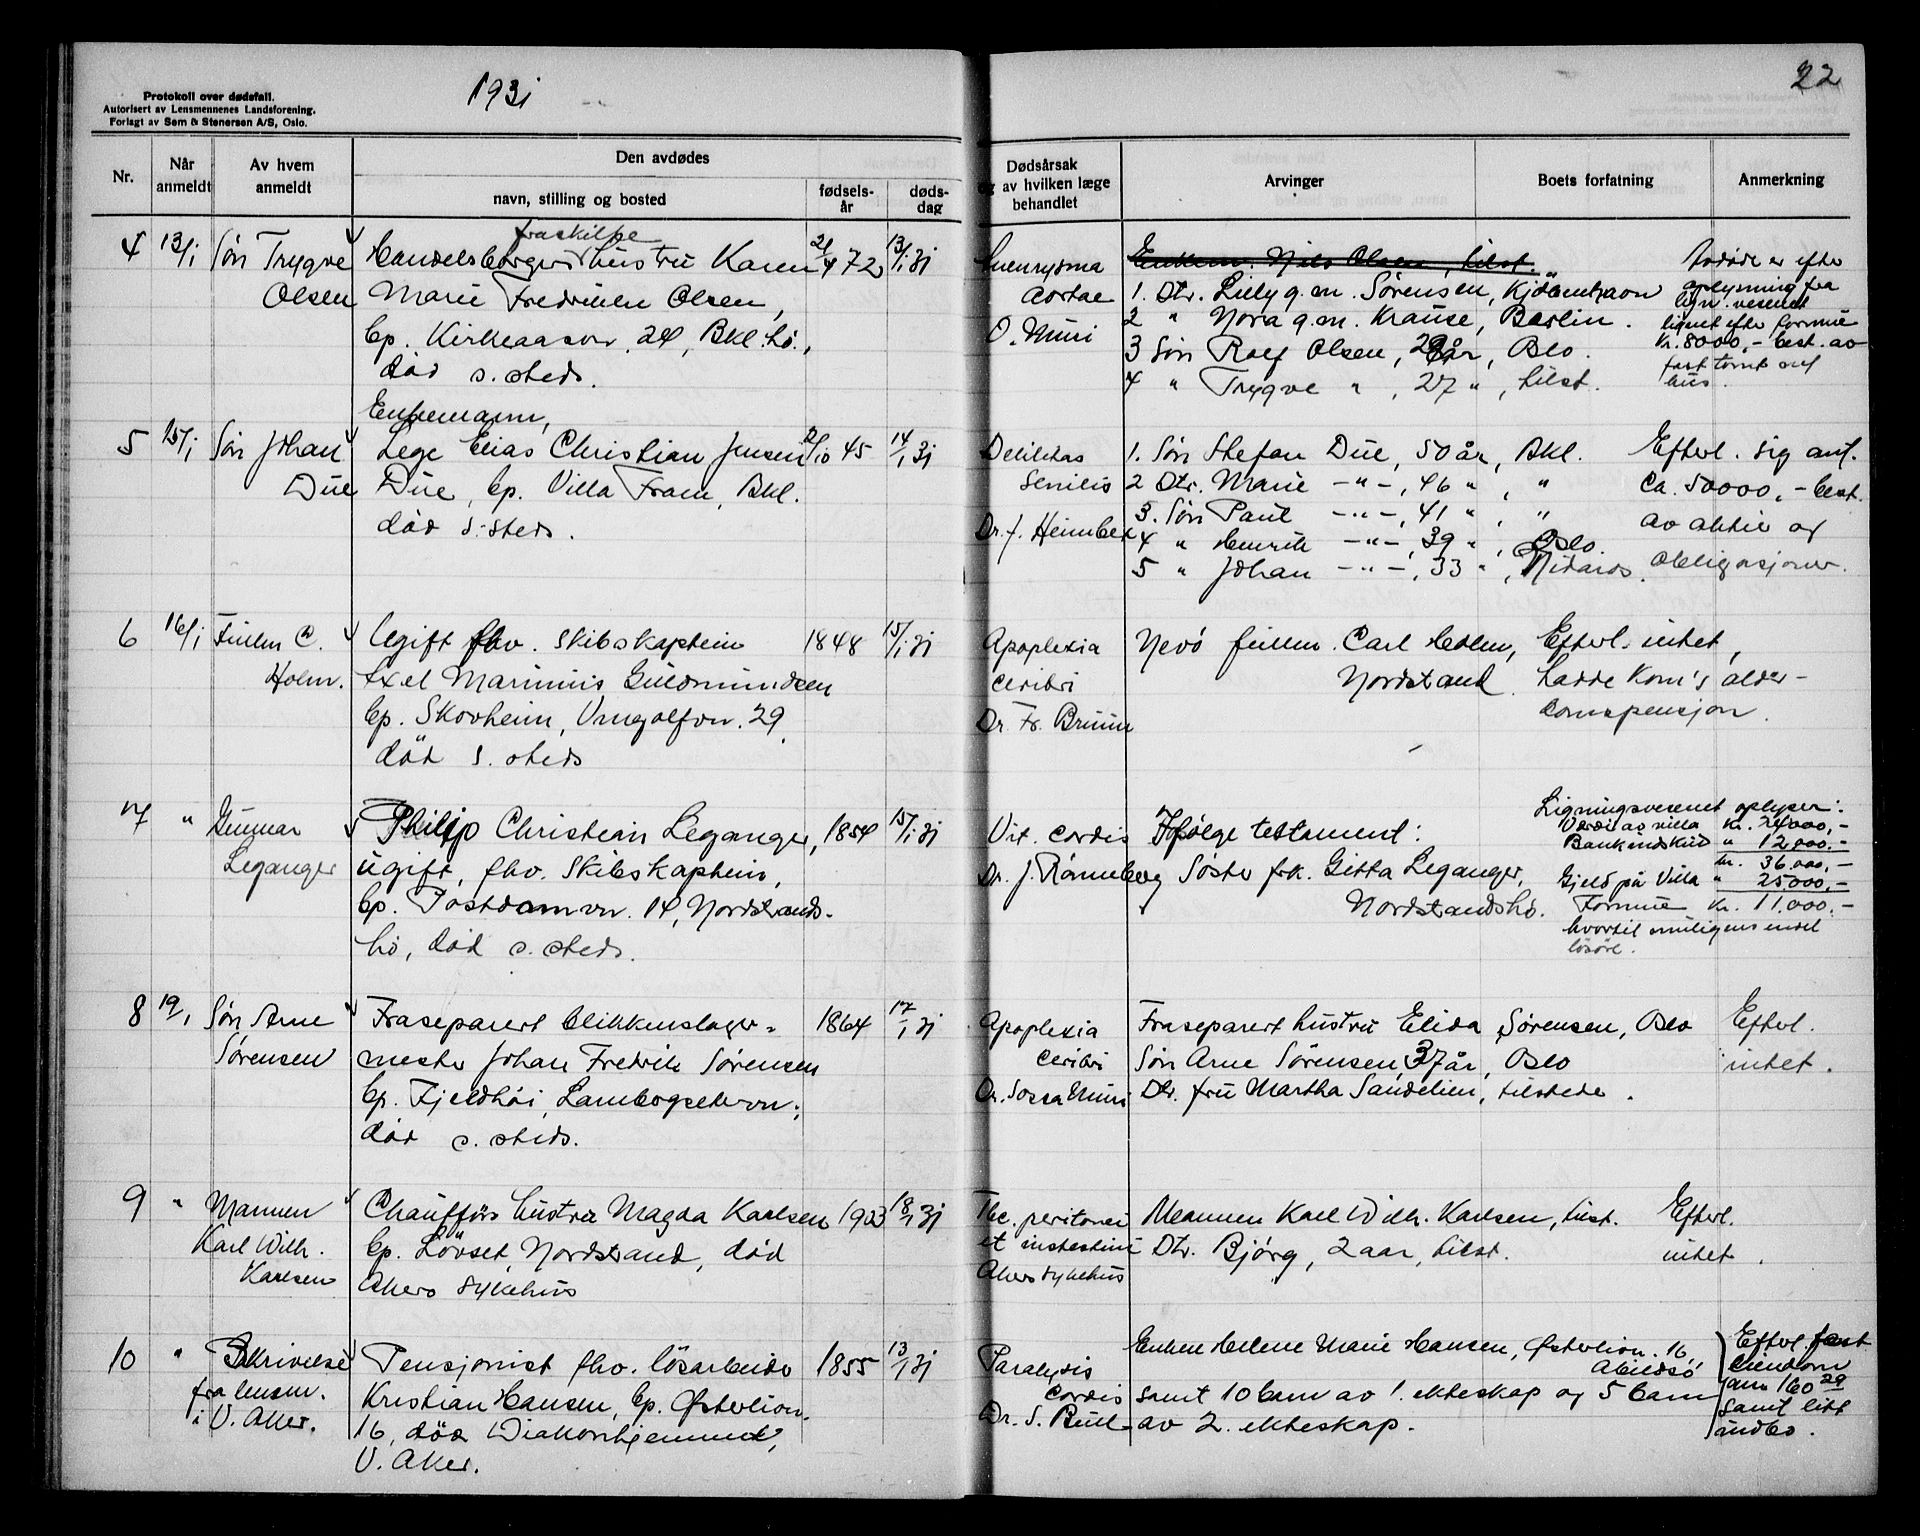 1931
22
Protokoll over dødsfall.
Autorisert av Lensmennenes Landsforening.
Forlagt av Sem & Stenersen A/S, Oslo.
Nr.
Når anmeldt
Av hvem anmeldt
Den avdødes
navn, stilling og bosted
fødsels-år
døds-dag
Dødsårsak
og av hvilken læge
behandlet
Arvinger
Boets forfatning
Anmerkning
4 13/1 Søn Trygve Olsen
fraskilte
Handelsborgers hustru Karen
Marie Fredrikken Olsen,
bp. Kirkeaasvn. 24, Bkl.hø.,
død s. steds.
21/4 72 13/1 31
Anenrysma
aortae
O. Muri
Enkem. Nils Olsen, tilst.
1. Dtr. Lilly g.m. Sørensen, Kjøbenhavn
2 " Nora g.m. Krause, Berlin.
3 Søn Rolf Olsen, år, Oslo.
4 " Trygve " , 27 " , tilst.
Avdøde er efter
oplysning fra
lign.vesenet
lignet efter formue
kr. 8000,- best. av
fast tomt och
hus.
5 15/1 Søn Johan Due
Enkemann,
Lege Elias Christian Jensen
Due, bp. Villa Fram, Bkl.
død s. steds.
2/10 45 14/1 31
Debilitas
senilis
Dr. J. Heimbeck
1. Søn Stefan Due, 50 år, Bkl.
2 Dtr. Marie -"-, 46 " , "
3. Søn Paul -"-, 41 " , "
4 " Henrik -"-, 39 " , Oslo.
5 " Johan -"-, 33 " , Nidaros.
Efterl. sig ant.
ca. 50000,- best.
av aktier og
obligasjoner.
6 16/1 Fullm C. Holm.
Ugift fhv. skibskaptein
Axel Marinius Guldmundsen
bp. Skovheim, Vmgolfvn. 29.
død s. steds
1848 15/1 31
Apoplexia
ceribri
Dr. Fr. Bruun
Nevø fullm. Carl Holm,
Nordstrand.
Efterl. intet,
hadde kom's alder-
domspensjon.
7 " Gunnar Leganger
Philip Christian Leganger,
ugift, fhv. skibskaptein,
bp. Postdamvn. 14, Nordstrands-
hø, død s. steds.
1854 15/1 31
Vit. cordis
Dr. J. Rønneberg
Ifølge testament:
Søster frk. Gitta Leganger,
Nordstrandshø.
Ligningsvesenet oplyser:
Verdi av villa kr. 24000,-
Bankindskud " 12000,-
kr. 36.000,-
Gjeld på villa " 25000,-
Formue kr. 11.000,-
hvortil muligens endel
løsøre.
8 19/1 Søn Arne Sørensen
Fraseparert blikkenslager-
mester Johan Fredrik Sørensen
bp. Fjeldhøi, Lambogsetervn.,
død s. steds.
1864 17/1 31
Apoplexia
ceribri
Dr. Sossa Muri
Fraseparert hustru Elida Sørensen, Oslo
Søn Arne Sørensen, 37 år, Oslo
Dtr. fru Martha Sandelien, tilstede.
Efterl.
intet.
9 " Mannen
Karl Wilh.
Karlsen
Chaufførs hustru Magda Karlsen
bp. Løvset, Nordstrand, død
Akers sykehus
1903 18/1 31
Tbc. peritonei
et instestini
Akers sykehus
Mannen Karl Wilh. Karlsen, tilst.
Dtr. Bjørg, 2 aar, tilst.
Efterl.
intet.
10 " Skrivelse
fra lensm.
i V. Aker.
Pensjonist fhv. løsarbeider
Kristian Hansen, bp. Østerlion.
16, død Diakonhjemmet,
V. Aker.
1855 13/1 31
Paralysis
cordis
Dr. S. Bull
Enken Helene Marie Hansen, Østerlion. 16
Abildsø
samt 10 barn av 1. ekteskap og 5 barn
av 2. ekteskap.
Efterl. fast
eiendom
160 29
samt litt
indbo.